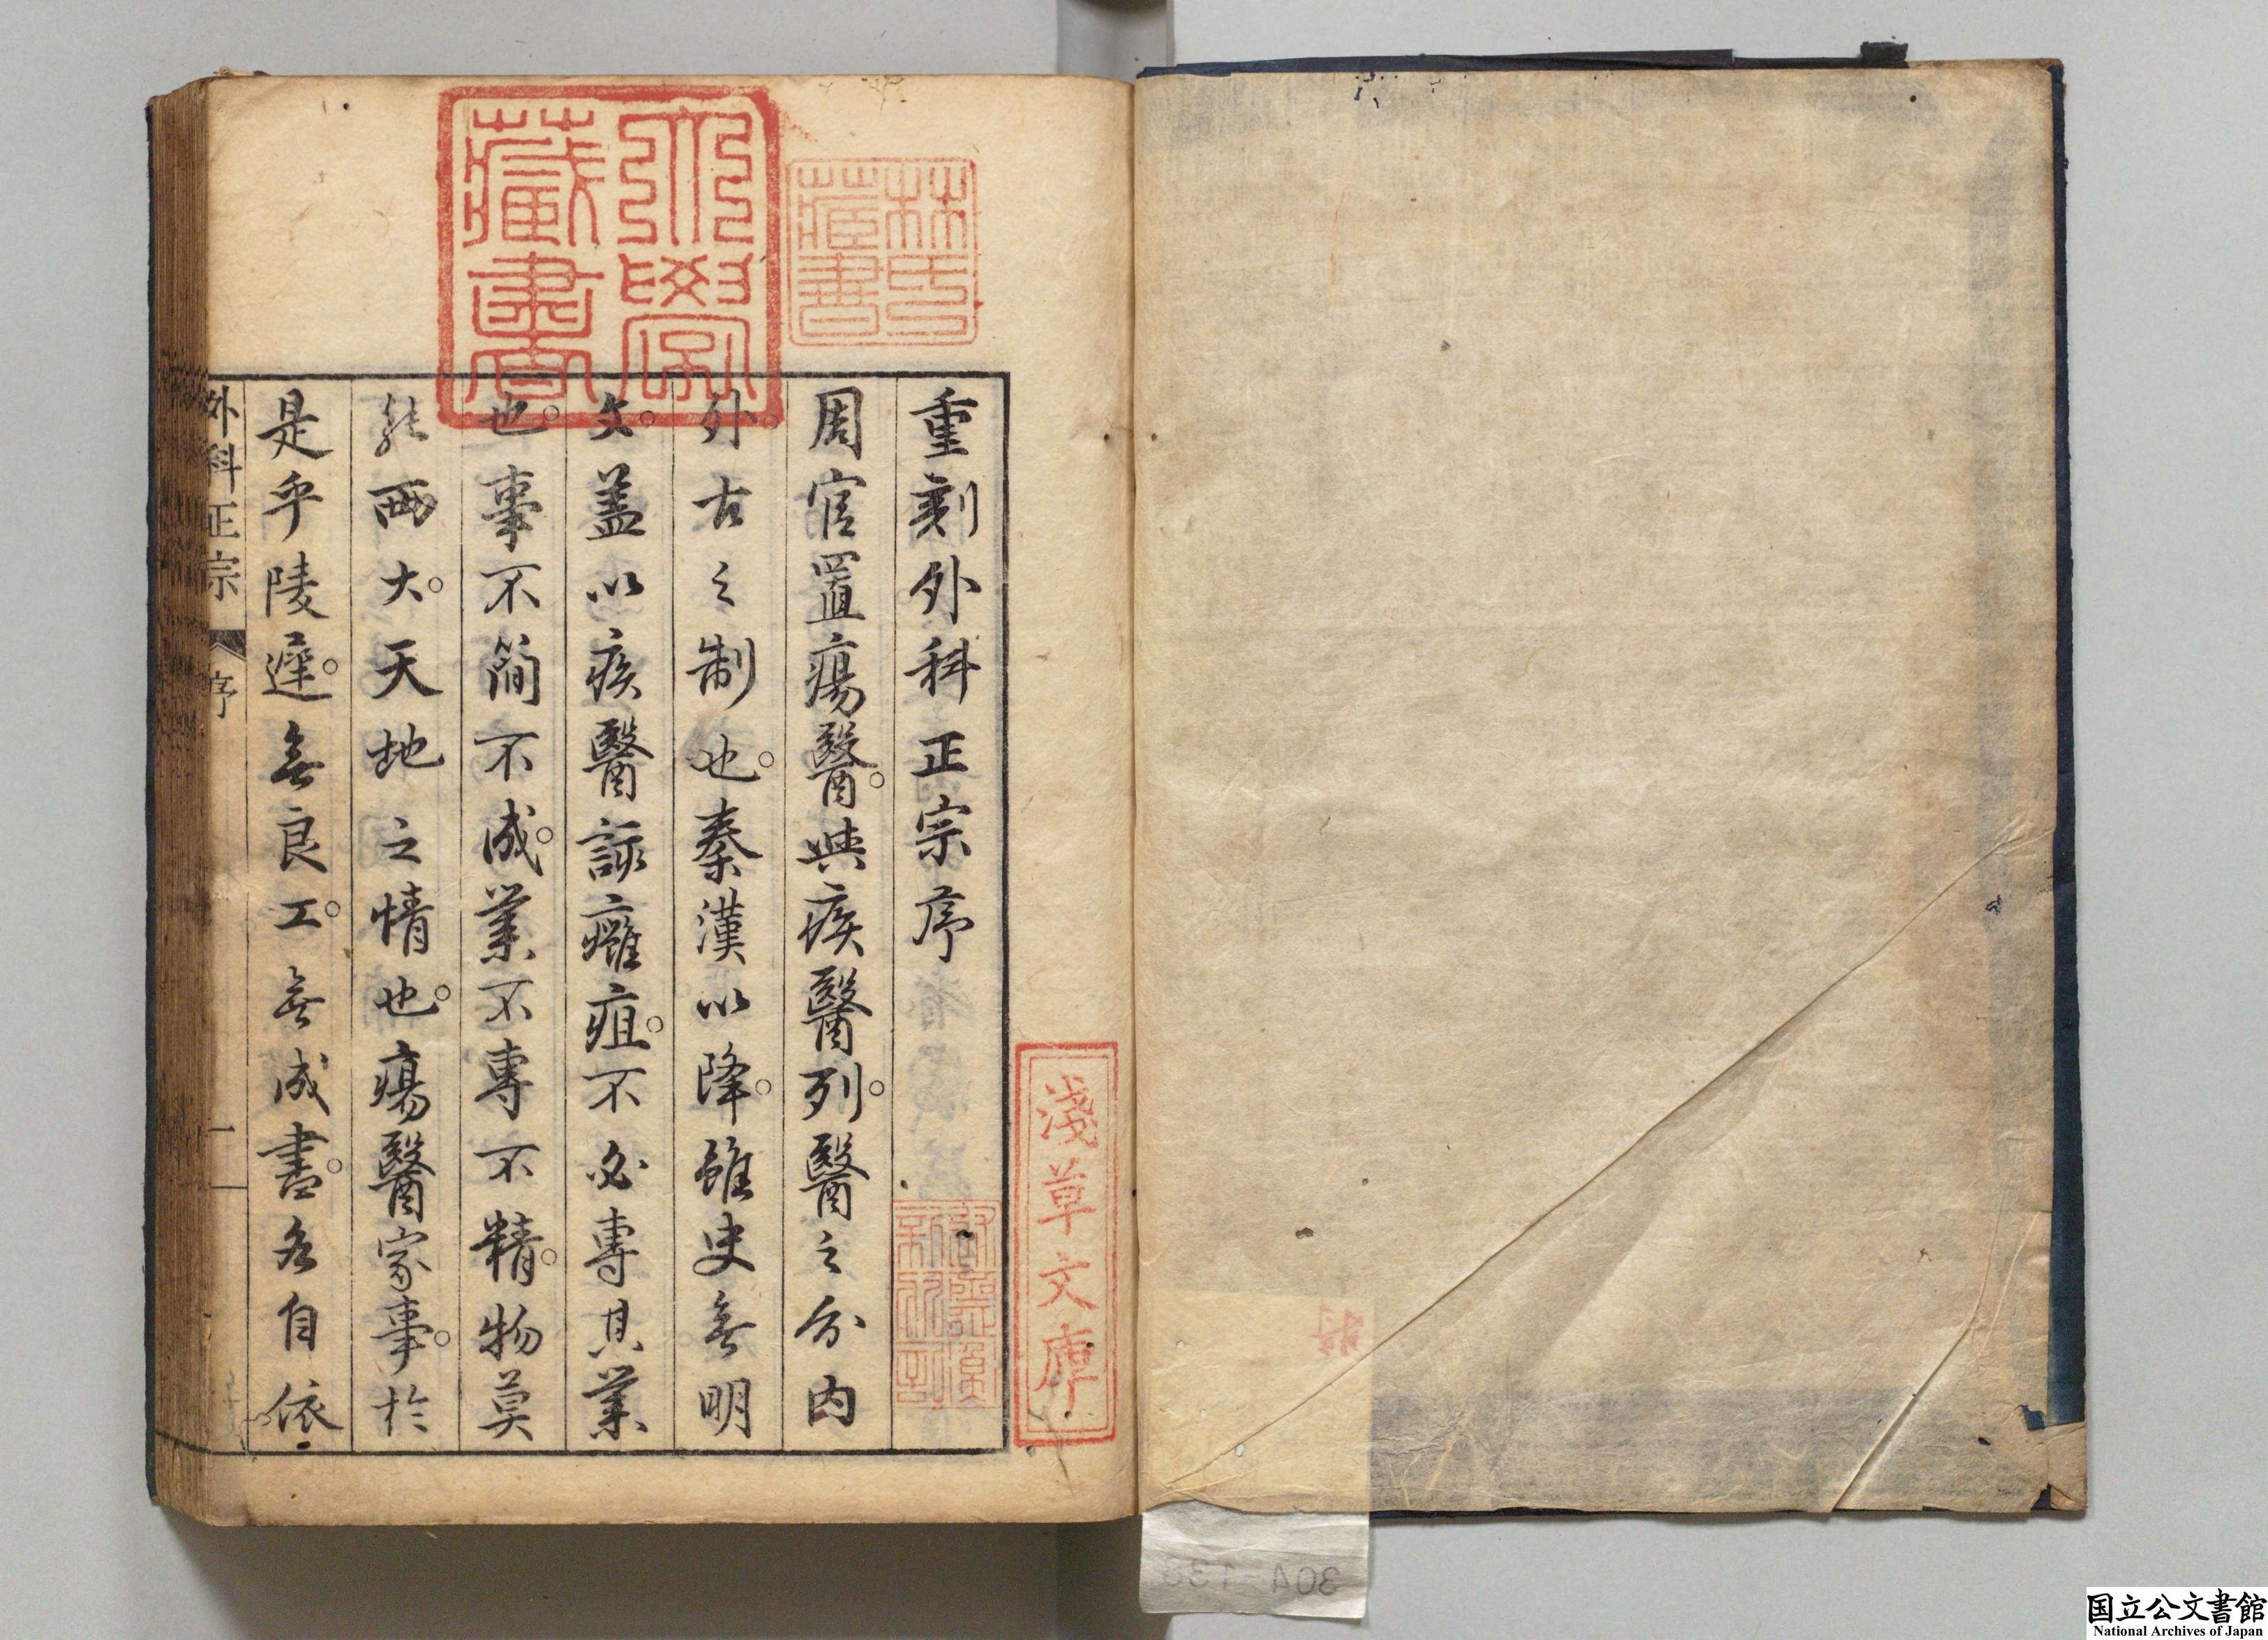 重刻外科正宗序
周官置瘍醫與疾醫列醫之分內
外古之制也秦漢以降雖史無明
文蓋以疾醫諒癰疽不必專其業
也事不簡不成業不專不精物莫
能兩大天地之情也瘍醫家事於
是乎陵遲無良工無成書各自依
外科正宗
序
一
大學藏書
林氏藏書
淺草文庫
304-13
国立公文書館
National Archives of Japan